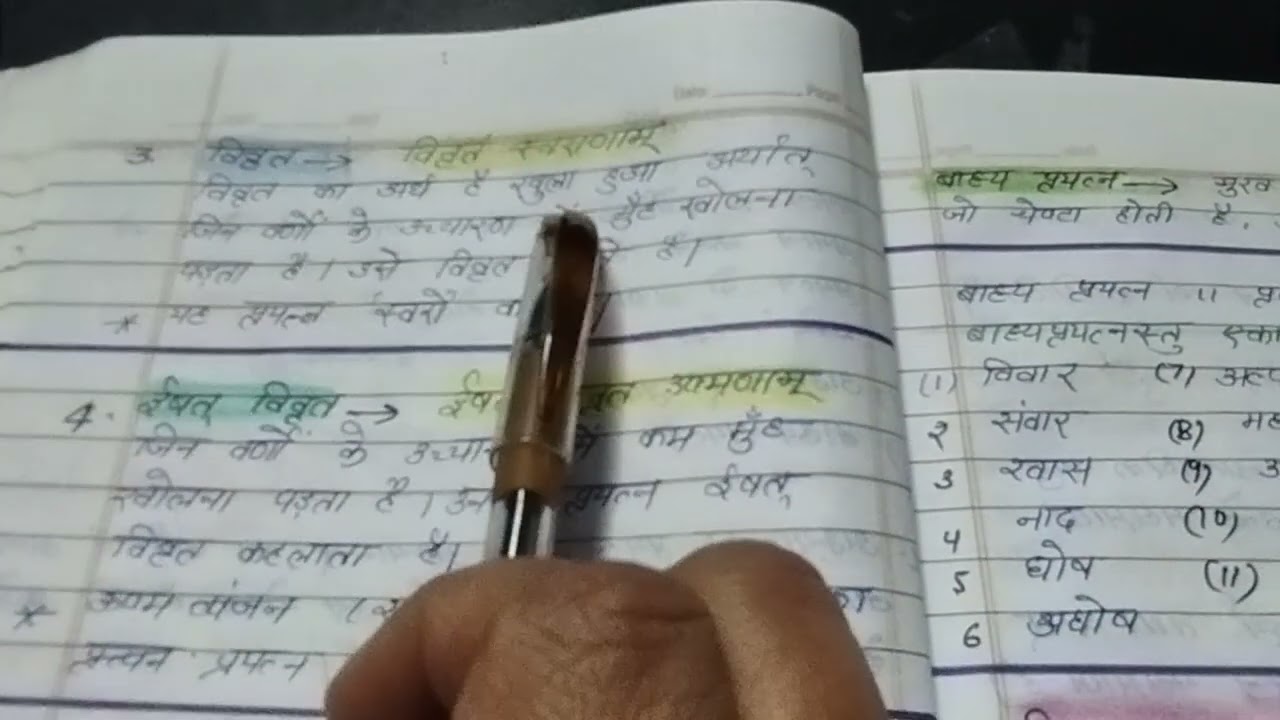 Date Page
3. विवृत → विवृतं स्वराणाम्
विवृत का अर्थ है खुला हुआ अर्थात्
जिन वर्णों के उच्चारण में मुँह खोलना
पड़ता है। उसे विवृत है।
* यह प्रयत्न स्वरों
4. ईषत् विवृत → ऊष्मणाम्
जिन वर्णों के में कम मुँह
खोलना पड़ता है। प्रयत्न ईषत्
विवृत कहलाता है।
* ऊष्म व्यंजन
प्रयत्न
बाह्य प्रयत्न → मुख
जो चेष्टा होती है,
बाह्य प्रयत्न 11
बाह्यप्रयत्नस्तु एका
(1) विवार (7) अल्प
२ संवार (8) मह
3 श्वास (9) उ
4 नाद (10)
5 घोष (11)
6 अघोष